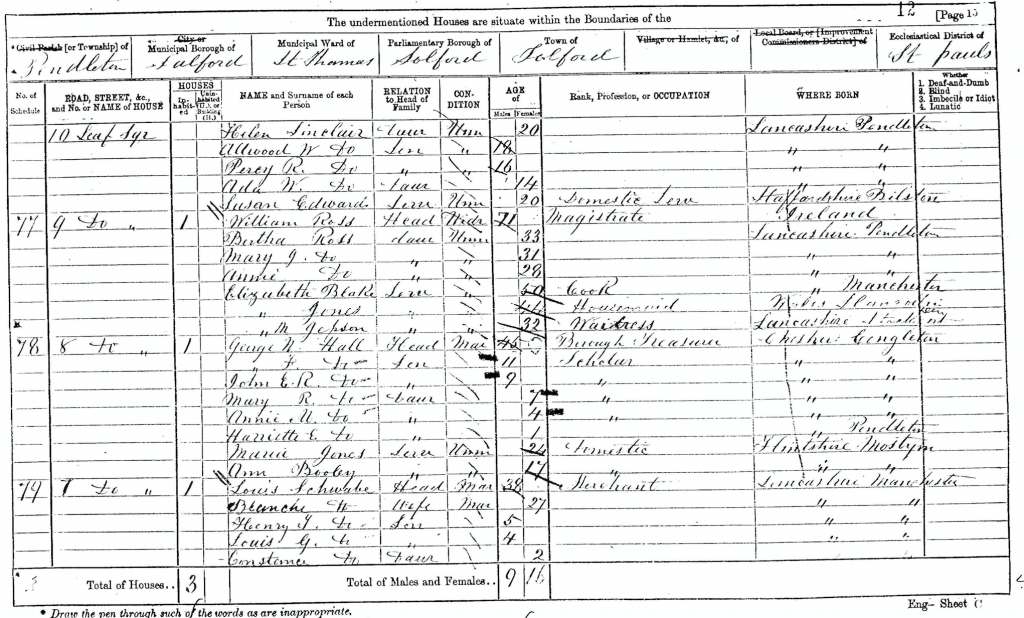 The undermentioned Houses are situate within the Boundaries of the
12 [Page 15
Civil Parish [or Township] of
City or Municipal Borough of
Municipal Ward of
Parliamentary Borough of
Town of
Village or Hamlet, &c., of
Local Board, or [Improvement Commissioners District] of
Ecclesiastical District of
Pendleton Salford St Thomas Salford Salford St Pauls
No. of Schedule
ROAD, STREET, &c., and No. or NAME of HOUSE
HOUSES
In-habit-ed
Unin-habited (U.), or Building (B.)
NAME and Surname of each Person
RELATION to Head of Family
CON-DITION
AGE of
Males Females
Rank, Profession, or OCCUPATION
WHERE BORN
Whether
1. Deaf-and-Dumb
2. Blind
3. Imbecile or Idiot
4. Lunatic
10 Leaf Sqr Helen Sinclair Daur Unm 20 Lancashire Pendleton
Allwood W Do Son " 18 " "
Percy R. Do " " 16 " "
Ada W. Do Daur 14 " "
Susan Edwards Serv Unm 20 Domestic Serv Staffordshire Bilston
77 9 Do " 1 William Ross Head Widr 71 Magistrate Ireland
Bertha Ross daur Unm 33 Lancashire Pendleton
Mary J. do " " 31 " "
Annie Do " " 28 " "
Elizabeth Blake Serv " 50 Cook " Manchester
" Jones " " 44 Housemaid Wales
" M Jepson " " 32 Waitress Lancashire
78 8 Do " 1 George W. Hall Head Mar 45 Borough Treasurer Cheshire Congleton
" F. do Son 11 Scholar " "
John E. R. do " 9 " " "
Mary R. do Daur 7 " " "
Annie M. do " 4 " " "
Harriette E. do " 1 " Pendleton
Maria Jones Serv Unm 24 Domestic Flintshire Mostyn
Ann Booley " " 17 " " "
79 7 Do " 1 Louis Schwabe Head Mar 38 Merchant Lancashire Manchester
Blanche do Wife Mar 27 " "
Henry J. do Son 5 " "
Louis G. do " 4 " "
Constance do Daur 2
3 Total of Houses.. 3 Total of Males and Females.. 9 16
* Draw the pen through such of the words as are inappropriate.
Eng- Sheet C